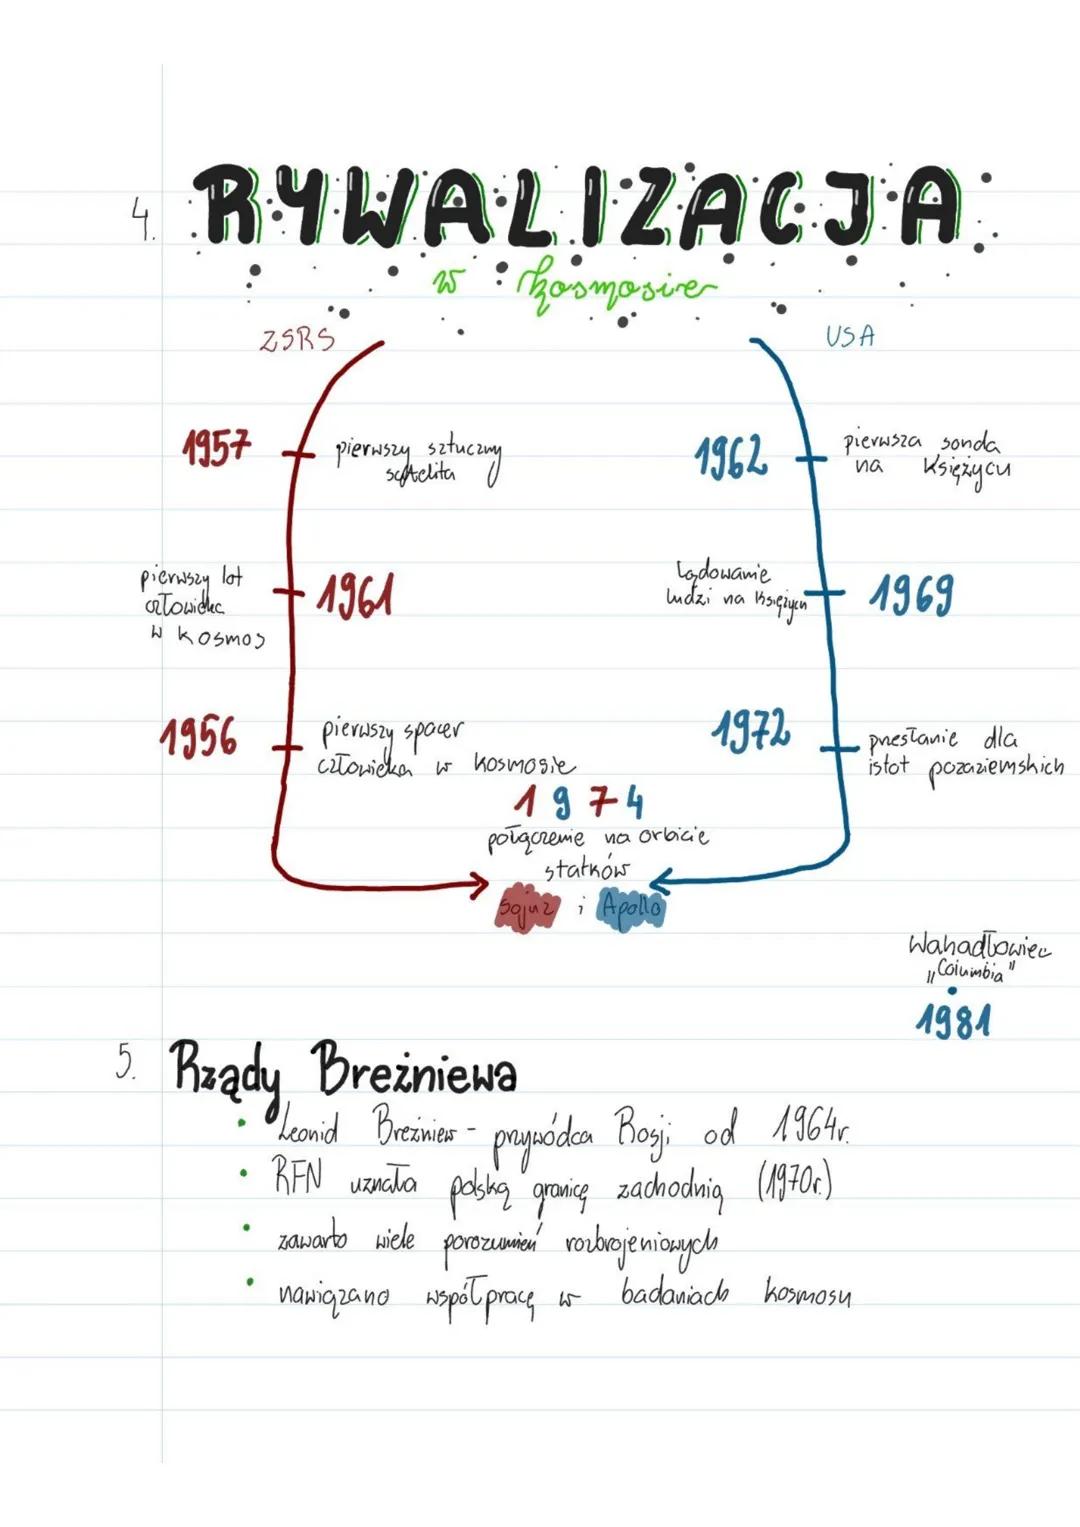 4. RYWALIZACJA
w kosmosie
ZSRS
USA
1957
pierwszy sztuczny
satelita
1962
pierwsza sonda
na Księżycu
pierwszy lot
człowieka
w kosmos
1961
Lądowanie
ludzi na Księżycu
1969
1956
pierwszy spacer
człowieka w kosmosie
1972
przesłanie dla
istot pozaziemskich
1974
połączenie na orbicie
statków
Sojuz i Apollo
Wahadłowiec
„Columbia"
1981
5. Rządy Breżniewa
• Leonid Breżniew - przywódca Rosji od 1964r.
• RFN uznała polską granicę zachodnią (1970r.)
• zawarto wiele porozumień rozbrojeniowych
• nawiązano współpracę w badaniach kosmosu